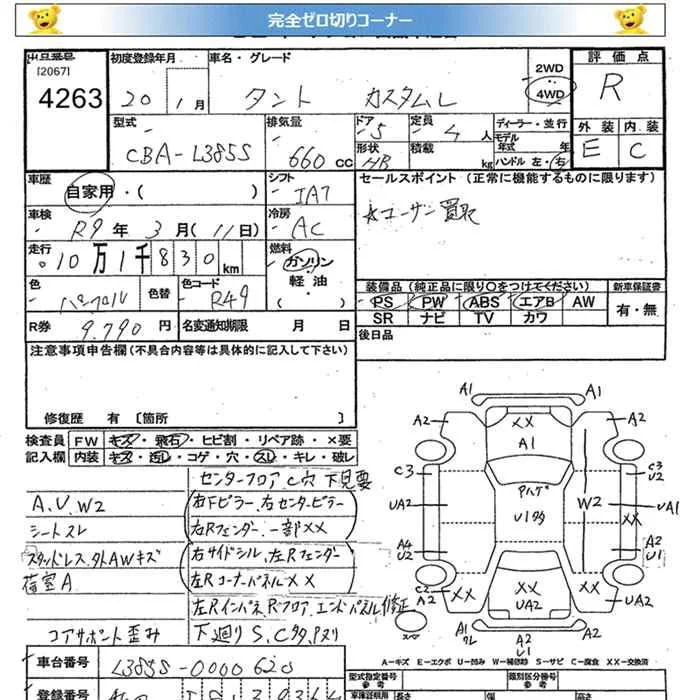 完全ゼロ切りコーナー
出品番号 初度登録年月 車名・グレード 評価点
[2067] 2WD
4263 20 1月 タント カスタムL 4WD R
型式 排気量 ドア 定員 ディーラー・並行 外装 内装
CBA-L385S 660cc 5 4人 モデル年式 年 E C
形状 HB 積載 kg ハンドル 左・右
車歴 自家用・( ) シフト IAT セールスポイント (正常に機能するものに限ります)
車検 R9年3月(11日) 冷房 AC ☆ユーザー買取
走行 10万1千830km 燃料 ガソリン・軽油・( )
色 パープル 色替 色コード R49 装備品(純正品に限り○をつけてください) 新車保証書
PS PW ABS エアB AW 有・無
R券 9,790円 名変通知期限 月 日 SR ナビ TV カワ
注意事項申告欄(不具合内容等は具体的に記入して下さい) 後日品
修復歴 有 〔箇所 〕
検査員 FW キズ・飛石・ヒビ割・リペア跡・×要
記入欄 内装 キズ・汚レ・コゲ・穴・スレ・キレ・破レ
センターフロア、C穴 下見要
A.U.W2 右Fピラー.右センターピラー
シートスレ 右Rフェンダー.一部XX
スタッドレス.外AWキズ 右サイドシル.左Rフェンダー
荷室A 左Rコーナーパネル XX
左Rインパネ Rフロア.エンドパネル修正
コアサポート歪み 下廻りS、C多、Pヌリ
A1 A1
A2 XX A2
A1
C3 C3 U2
Pハゲ
UA2 U1多 W2 UA1
XX
A4 U2 A2 U1
C2 A2 XX XX XX UA2
UA2
スペア A1 クレ A2 U1 A1
A-キズ E-エクボ U-凹み W-補修跡 S-サビ C-腐食 XX-交換済
車台番号 L385S-0000620
型式指定番号 類別区分番号
登録番号 車検証明用 長さ 幅 高さ